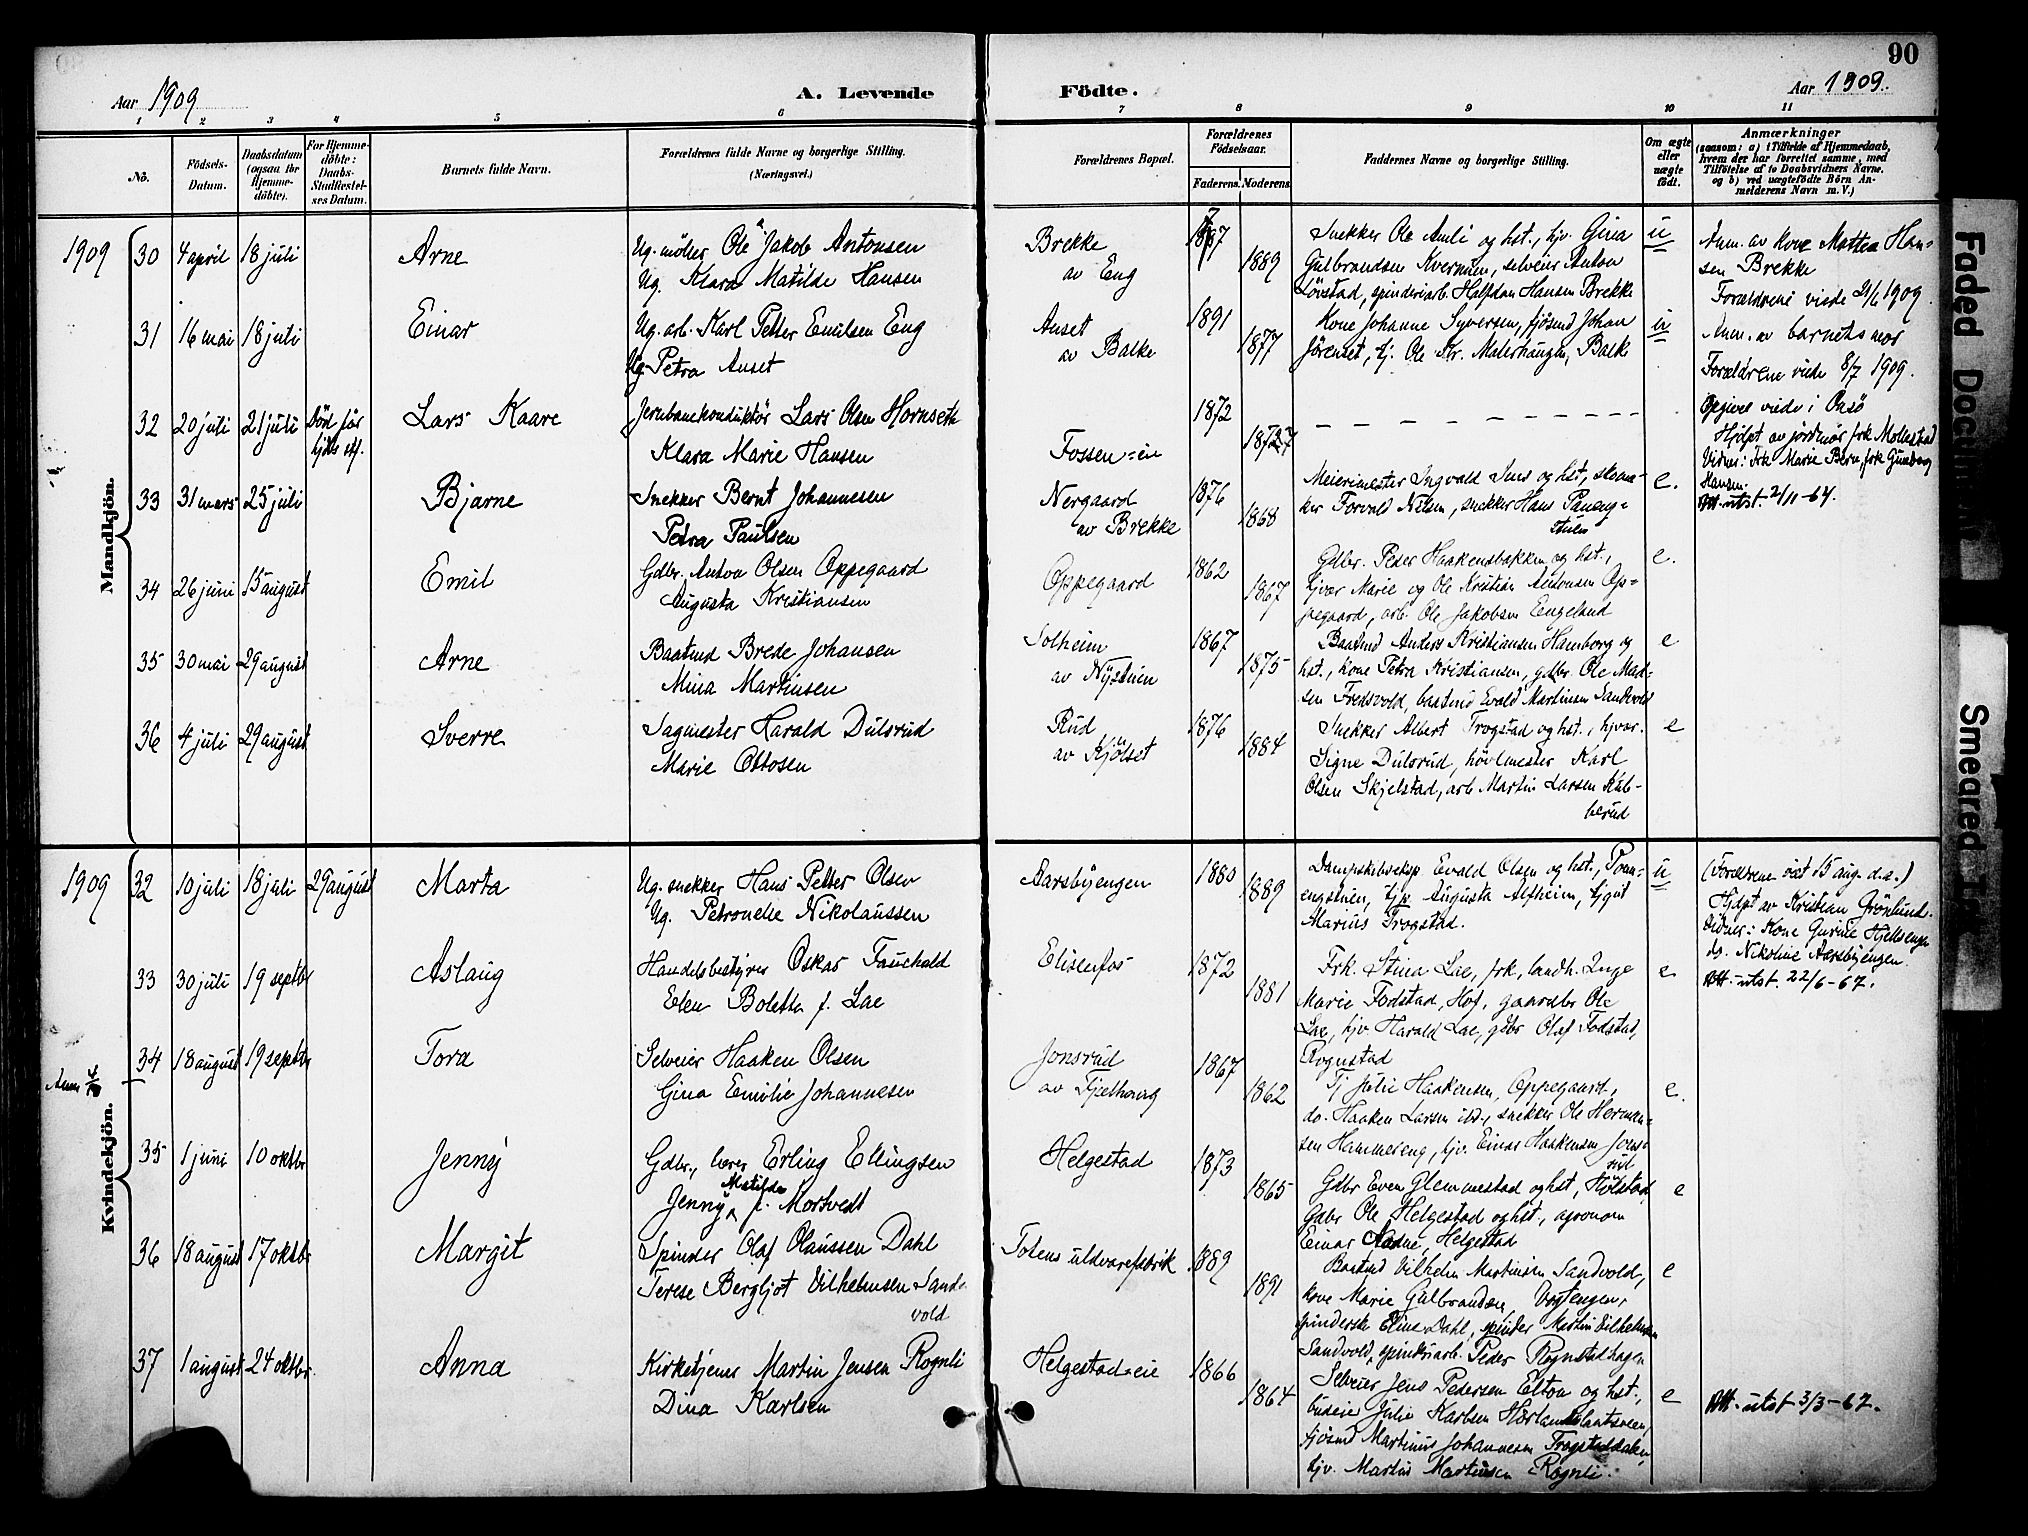 90
Aar 1909
A. Levende Födte.
Aar 1909.
1 2 3 4 5 6 7 8 9 10 11
No.
Födsels-Datum.
Daabsdatum (ogsaa for Hjemmedöbte).
For Hjemmedöbte: Daabs-Stadfæstelses Datum.
Barnets fulde Navn.
Forældrenes fulde Navne og borgerlige Stilling.
(Næringsvei.)
Forældrenes Bopæl.
Forældrenes Födselsaar.
Faderens. Moderens.
Faddernes Navne og borgerlige Stilling.
Om ægte eller uægte födt.
Anmærkninger
(saasom: a) i Tilfælde af Hjemmedaab, hvem der har forrettet samme, med Tilföielse af to Daabsvidners Navne. og b) ved uægtefödte Börn Anmelderens Navn m. V.)
Mandkjön.
1909 30 4 april 18 juli Arne
Ug. møller Ole Jakob Antonsen
Ug. Klara Matilde Hansen
Brekke
av Eng
1889
Snekker Ole Amli og hst., hv. Gina
Gulbrandsen Kvernum, selveier Anton
Løvstad, spinderiarb. Halfdan Hansen Brekke
u
Anm. av kone Mattea Hansen Brekke
Forældrene viede 21/6 1909.
31 16 mai 18 juli Einar
Ug. arb. Karl Petter Emilsen Eng
Ug. Petra Anset
Anset
av Balke
1891
1877
Kone Johanne Syversen, fjøsmd Johan
u
Anm. av barnets mor
Forældrene viede 8/7 1909.
32 20 juli 21 juli Død før
Lars Kaare
Jernbanekonduktør Lars Olsen Hornseth
Klara Marie Hansen
Fossen-eie
1872
Hjulpt av jordmor frk Mollestad
Vidner: Frk Marie Bern, frk Gunborg
Hansen.
33 31 mars 25 juli Bjarne
Snekker Bernt Johannesen
Petra Paulsen
Nergaard
av Brekke
1876
1868
Meierimester Ingvald Jens og hst,
e.
Att. utst. 2/11-64.
34 26 juni 15 august Emil
Gdbr. Anton Olsen Oppegaard
Augusta Kristiansen
Oppegaard
1862
1867
Gdbr. Peder Haakensbakken og hst.,
Marie og Ole Kristian Antonsen Oppegaard, arb. Ole Jakobsen Eengelund
e.
35 30 mai 29 august Arne
Baatsmd Brede Johansen
Mina Martinsen
Solheim
av Nystuen
1867
1875
Baatsmd Anders Kristiansen Hamborg og
hst., kone Petra Kristiansen, gdbr. Ole Madsen Fredsvold, baatsmd Evald Martinsen Sandvold
e
36 4 juli 29 august Sverre
Sagmester Harald Dulsrud
Marie Ottosen
Rud
av Kjølset
1876
1884
Snekker Albert Trogstad og hst.,
Signe Dulsrud, høvlmester Karl
Olsen Skjelstad, arb Martin Larsen
e
Kvindekjön.
1909 32 10 juli 18 juli 29 august Marta
Ug. snekker Hans Petter Olsen
Ug. Petronelle Nikolaussen
Aarsbyengen
1880
1889
Dampskibseksp. Evald Olsen og hst.,
Augusta Alfheim, tjgut
Marius Trogstad.
u
(Foreldrene viet 15 aug. d.a.)
Hjdpt av Kristian Grønlund.
Vidner: Kone Gurine Hjellsengen
do. Nikoline Aarsbyengen.
33 30 juli 19 septbr Aslaug
Handelsbestyrer Oskar Fauchald
Elen Boletta f. Lae
Elisenfos
1872
1881
Frk. Stina Lae, frk, landh. Inge
Marie Fodstad, Hof, gaardbr Ole
Lae, hjv Harald Lae, gdbr Olaf Fodstad,
Rognstad
e
Att. utst. 22/6-67.
34 18 august 19 septbr Tora
Selveier Haaken Olsen
Gina Emilie Johannesen
Jonsrud
1867
1862
Tj Julie Haakensen, Oppegaard,
do. Haaken Larsen ibd., snekker Ole Hermansen Hammereng, hjv. Einar Haakensen Jonsrud
e.
35 1 juni 10 oktbr Jenny
Gdbr., lærer Erling Ellingsen
Jenny Matilde f. Mortvedt
Helgestad
1873
1865
Gdbr Even Glemmestad og hst, Hølstad,
Gdbr Ole Helgestad og hst., agronom
Einar Helgestad
e
36 18 august 17 oktbr Margit
Spinder Olaf Olaussen Dahl
Terese Bergljot Vilhelmsen Sandvold
Totens uldvarefabrik
1889
1891
Baatsmd Vilhelm Martinsen Sandvold,
kone Marie Gulbrandsen,
spinderske Eline Dahl, spinder Martin Vilhelmsen
Sandvold, spinderiarb. Peder Rognstadhagen
e
37 1 august 24 oktbr. Anna
Kirketjener Martin Jensen Rognli
Dina Karlsen
Helgestad-eie
1866
1864
Selveier Jens Pedersen Elton og hst.,
budeie Julie Karlsen
fjøsmd Martinus Johannesen
hjv. Martin Martinsen Rognli.
e
Att. utst 3/3-67.
Faded Document
Smeared Ink